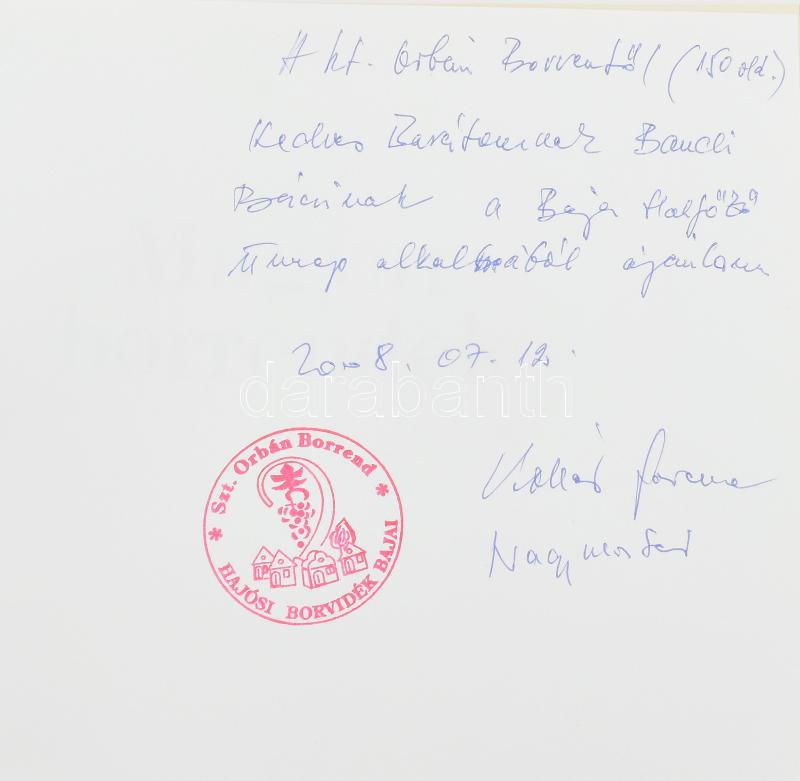 A kt. Orbán Borrendtől (150 old.)
Kedves Barátomnak Bandi
Bácsinak a Bajai Halfőző
Ünnep alkalmából ajánlom
2008. 07. 12.
darabanth
Szt. Orbán Borrend
HAJÓSI BORVIDÉK BAJAI
Ferenc
Nagymester